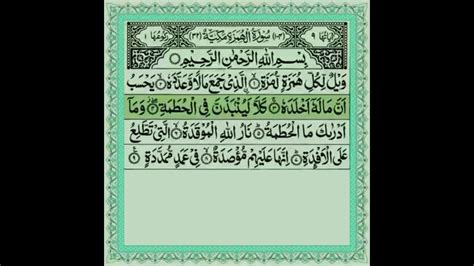 اٰیَاتُهَا ۹ (۱۰۴) سُوْرَةُ الْهُمَزَةِ مَكِّيَّةٌ (۳۲) رُكُوْعُهَا ۱
بِسْمِ اللّٰهِ الرَّحْمٰنِ الرَّحِيْمِ
وَيْلٌ لِّكُلِّ هُمَزَةٍ لُّمَزَةِ ۝ الَّذِيْ جَمَعَ مَالًا وَّعَدَّدَهٗ ۝ يَحْسَبُ
اَنَّ مَالَهٗٓ اَخْلَدَهٗ ۝ كَلَّا لَيُنْۢبَذَنَّ فِي الْحُطَمَةِ ۝ وَمَآ
اَدْرٰىكَ مَا الْحُطَمَةُ ۝ نَارُ اللّٰهِ الْمُوْقَدَةُ ۝ الَّتِيْ تَطَّلِعُ
عَلَى الْاَفْـِٕدَةِ ۝ اِنَّهَا عَلَيْهِمْ مُّؤْصَدَةٌ ۝ فِيْ عَمَدٍ مُّمَدَّدَةٍ ۝